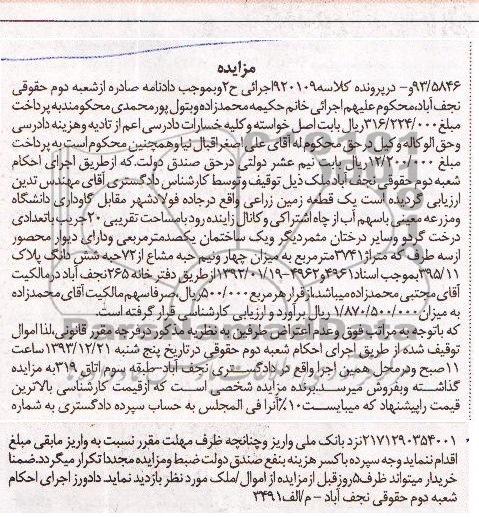 مزایده
۹۳/۵۸۴۶و- درپرونده کلاسه۹۲۰۱۰۹اجرائی ح۲وبموجب دادنامه صادره ازشعبه دوم حقوقی
نجف آباد،محکوم علیهم اجرائی خانم حکیمه محمدزاده وبتول پورمحمدی محکومندبه پرداخت
مبلغ۳۱۶/۲۲۴/۰۰۰ریال بابت اصل خواسته وکلیه خسارات دادرسی اعم از تادیه وهزینه دادرسی
وحق الوکاله وکیل درحق محکوم له آقای علی اصغر اقبال نیا وهمچنین محکوم است به پرداخت
مبلغ ۱۲/۲۰۰/۰۰۰ریال بابت نیم عشر دولتی درحق صندوق دولت.که ازطریق اجرای احکام
شعبه دوم حقوقی نجف آباد ملک ذیل توقیف وتوسط کارشناس دادگستری آقای مهندس تدین
ارزیابی گردیده است یک قطعه زمین زراعی واقع درجاده فولادشهر مقابل گاوداری دانشگاه
ومزرعه معینی باسهم آب از چاه اشتراکی وکانال زاینده رود بامساحت تقریبی ۲۰جریب باتعدادی
درخت گردو وسایر درختان مثمردیگر ویک ساختمان یکصدمترمربعی ودارای دیوار محصور
ازسه طرف که متراژ۳۷۴۱مترمربع به میزان چهار ونیم حبه مشاع از۷۲حبه شش دانگ پلاک
۳۹۵/۱۱بموجب اسناد۴۹۶۱و۴۹۶۲-۱۳۹۲/۰۱/۱۹ازطریق دفتر خانه ۲۶۵نجف آباد درمالکیت
آقای مجتبی محمدزاده میباشد،از قرار هر مربع ۵۰۰/۰۰۰ریال،صرفاسهم مالکیت آقای محمدزاده
به میزان ۱/۸۷۰/۵۰۰/۰۰۰ ریال برآورد و ارزیابی کارشناسی قرار گرفته است.
که باتوجه به مراتب فوق وعدم اعتراض طرفین به نظریه مذکور درفرجه مقرر قانونی،لذا اموال
توقیف شده از طریق اجرای احکام شعبه دوم حقوقی درتاریخ پنج شنبه ۱۳۹۳/۱۲/۲۱ساعت
۱۱صبح ودرمحل همین اجرا واقع در دادگستری نجف آباد-طبقه سوم اتاق ۳۱۹به مزایده
گذاشته وبفروش میرسد.برنده مزایده شخصی است که ازقیمت کارشناسی بالاترین
قیمت راپیشنهاد که میبایست۱۰٪آنرا فی المجلس به حساب سپرده دادگستری به شماره
۲۱۷۱۲۹۰۳۵۴۰۰۱نزد بانک ملی واریز وچنانچه ظرف مهلت مقرر نسبت به واریز مابقی مبلغ
اقدام ننماید وجه سپرده باکسر هزینه بنفع صندوق دولت ضبط ومزایده مجددا تکرار میگردد.ضمنا
خریدار میتواند ظرف۵روزقبل از مزایده از اموال /ملک مورد نظر بازدید نماید. دادورز اجرای احکام
شعبه دوم حقوقی نجف آباد - م/الف۳۴۹۱